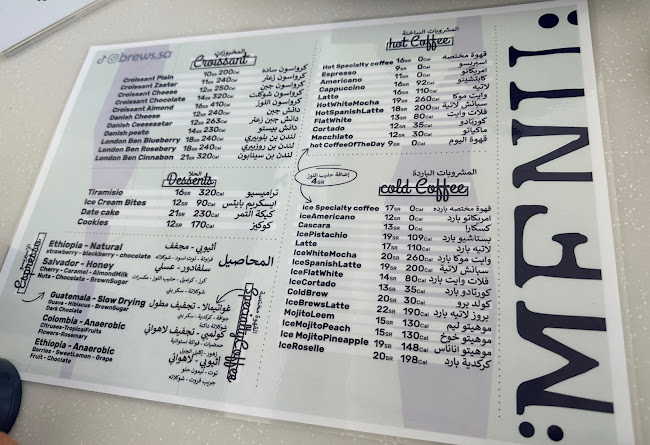 brews.sa
المخبوزات
Croissant
Croissant Plain 10SR 200Cal كرواسون ساده
Croissant Zaatar 11SR 240Cal كرواسون زعتر
Croissant Cheese 12SR 250Cal كرواسون جبن
Croissant Chocolate 14SR 320Cal كرواسون شوكلت
Croissant Almond 16SR 410Cal كرواسون اللوز
Danish Cheese 12SR 240Cal دانش جبن
Danish Ceesezatar 12SR 263Cal دانش جبن زعتر
Danish pesto 14SR 230Cal دانش بيستو
London Ben Blueberry 18SR 240Cal لندن بن بلوبيري
London Ben Roseberry 18SR 240Cal لندن بن روزبيري
London Ben Cinnabon 21SR 320Cal لندن بن سينابون
الحلا
Desserts
Tiramisio 16SR 320Cal تراميسيو
Ice Cream Bites 12SR 90Cal ايسكريم بايتس
Date cake 21SR 230Cal كيكة التمر
Cookies 12SR 170Cal كوكيز
المحاصيل
Espresso
Ethiopia - Natural أثيوبي - مجفف
strawberry - blackberry - chocolate
Salvador - Honey سلفادور - عسلي
Cherry - Caramel - AlmondMilk
Nuts - Chocolate - BrownSugar
Guatemala - Slow Drying غواتيمالا - تجفيف مطول
Guava - Hibiscus - BrownSugar
Dark Choclate
Colombia - Anaerobic كولمبي - تجفيف لاهوائي
Citruses-TropicalFruits
Flowers-Rosemary
Ethiopia - Anaerobic أثيوبي - لاهوائي
Berries - SweetLemon - Grape
Fruit - Choclate
المشروبات الساخنة
hot Coffee
Hot Specialty coffee 16SR 0Cal قهوة مختصه
Espresso 9SR 0Cal اسبريسو
Americano 11SR 0Cal امريكانو
Cappuccino 16SR 92Cal كابتشينو
Latte 16SR 110Cal لاتيه
HotWhiteMocha 19SR 260Cal وايت موكا
HotSpanishLatte 18SR 200Cal سبانش لاتيه
FlatWhite 13SR 80Cal فلات وايت
Cortado 12SR 35Cal كورتادو
Macchiato 12SR 30Cal ماكياتو
hot CoffeeOfTheDay 9SR 0Cal قهوة اليوم
إضافة حليب اللوز
4SR
المشروبات الباردة
cold Coffee
ice Specialty coffee 17SR 0Cal قهوة مختصه بارده
iceAmericano 12SR 0Cal امريكانو بارد
Cascara 13SR 0Cal كسكارا
IcePistachio 19SR 109Cal بستاشيو بارد
Latte 17SR 110Cal لاتيه بارد
IceWhiteMocha 20SR 260Cal وايت موكا بارد
IceSpanishLatte 19SR 200Cal سبانش لاتيه
IceFlatWhite 14SR 80Cal فلات وايت بارد
IceCortado 13SR 35Cal كورتادو بارد
ColdBrew 20SR 30Cal كولد برو
IceBrewsLatte 22SR 190Cal بروز لاتيه بارد
MojitoLeem 15SR 130Cal موهيتو ليم
IceMojitoPeach 15SR 130Cal موهيتو خوخ
IceMojitoPineapple 19SR 148Cal موهيتو اناناس
IceRoselle 20SR 198Cal كركدية بارد
MENU